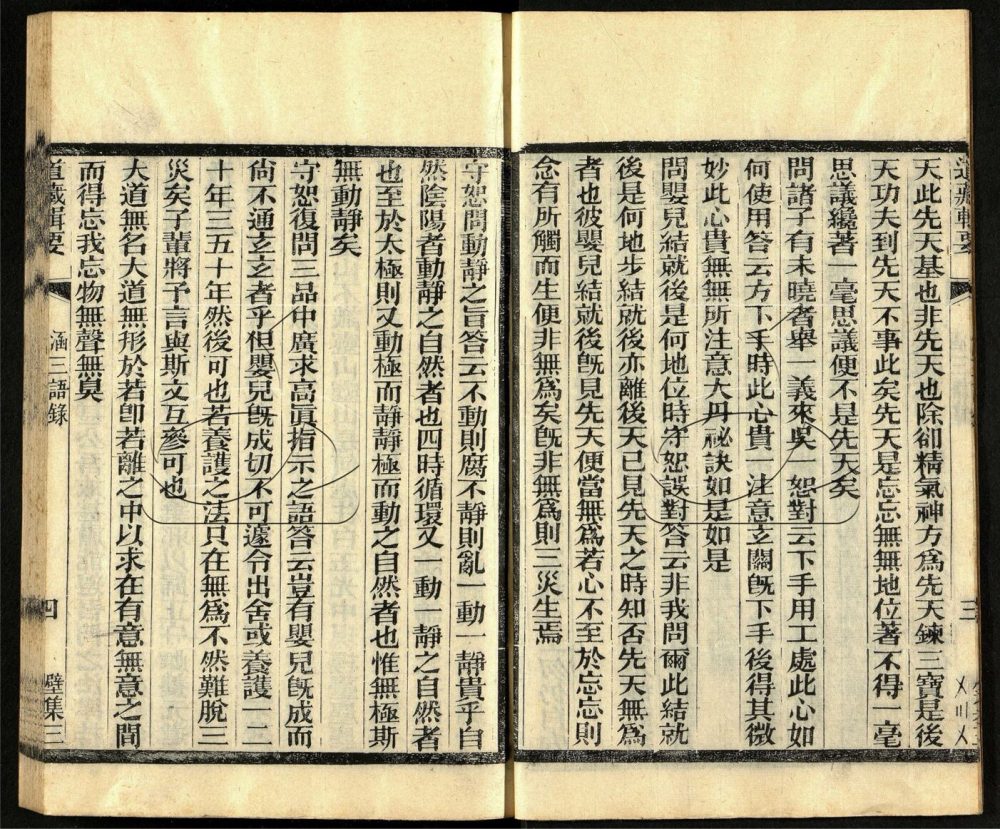 道藏輯要
三
天此先天基也非先天也除卻精氣神方爲先天鍊三寶是後
天功夫到先天不事此矣先天是忘忘無無地位著不得一毫
思議纔著一毫思議便不是先天矣
問諸子有未曉者舉一義來吳一恕對云下手用工處此心如
何使用答云方下手時此心貴一注意玄關旣下手後得其微
妙此心貴無無所注意大丹祕訣如是如是
問嬰兒結就後是何地位時守恕誤對答云非我問爾此結就
後是何地步結就後亦離後天已見先天之時知否先天無爲
者也彼嬰兒結就後旣見先天便當無爲若心不至於忘忘則
念有所觸而生便非無爲矣旣非無爲則三災生焉
守恕問動靜之旨答云不動則腐不靜則亂一動一靜貴乎自
然陰陽者動靜之自然者也四時循環又一動一靜之自然者
也至於太極則又動極而靜靜極而動之自然者也惟無極斯
無動靜矣
守恕復問三品中廣求高眞指示之語答云豈有嬰兒旣成而
尙不通玄玄者乎但嬰兒旣成切不可遽令出舍或養護一二
十年三五十年然後可也若養護之法只在無爲不然難脫三
災矣子輩將予言與斯文互參可也
大道無名大道無形於若卽若離之中以求在有意無意之間
而得忘我忘物無聲無臭
道藏輯要
涵三語錄
四
壁集三